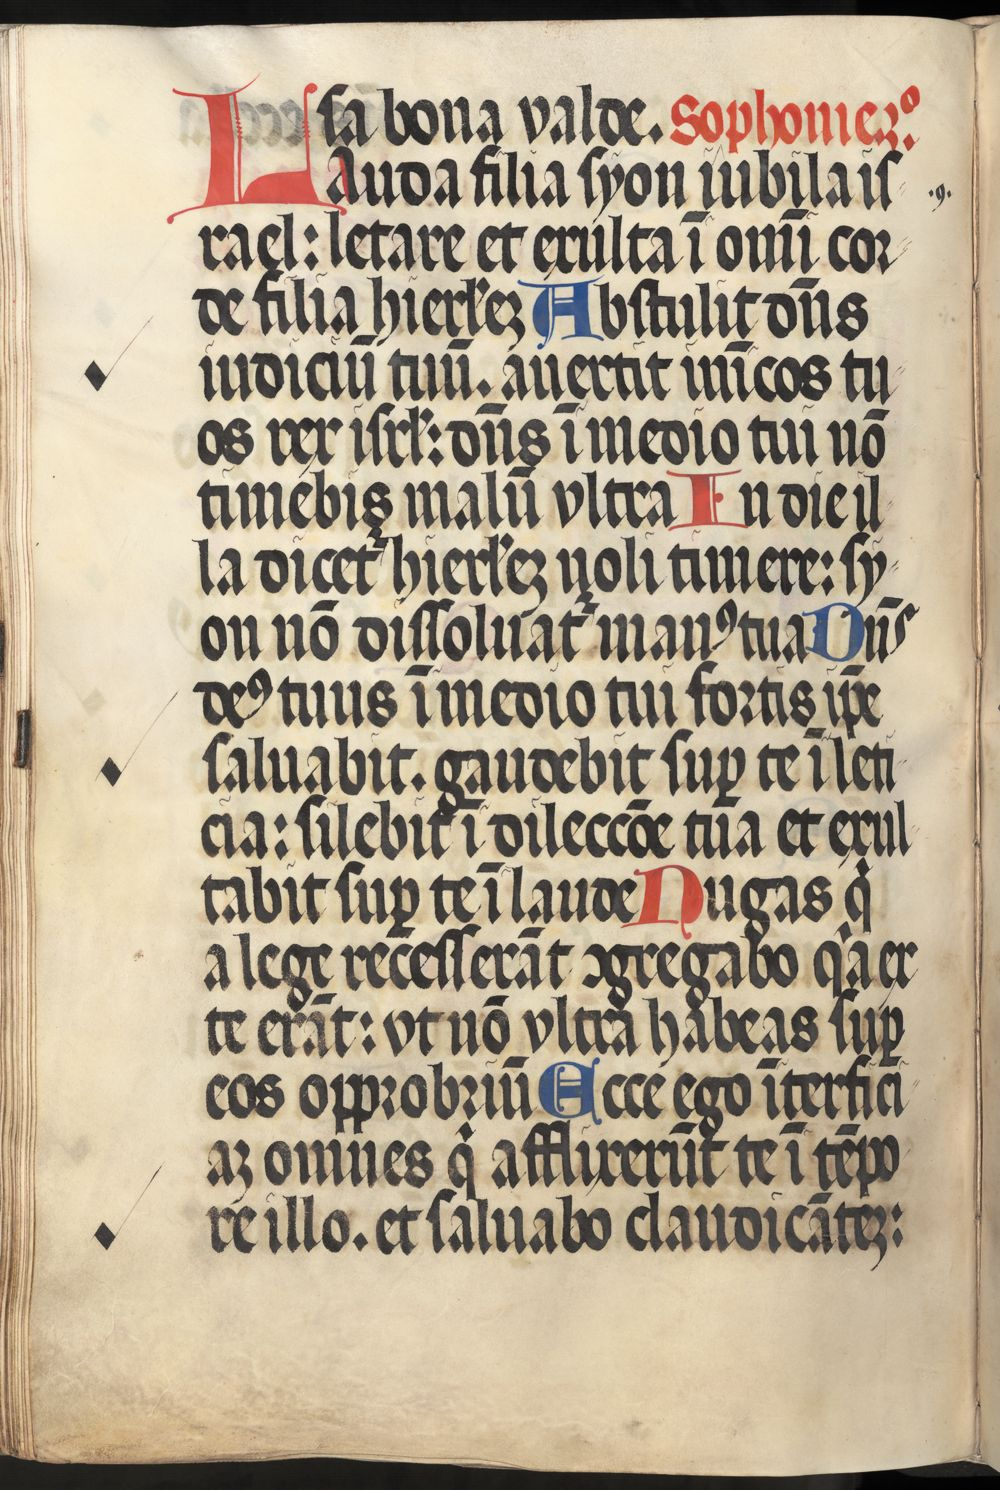 sa bona valde. Sophonie ꝫͦ:
Lauda filia syon iubila is
rael: letare et exulta ī om̄i cor
de filia hierl'eꝫ Abstulit dn̄s
iudiciū tuū. auertit inīcos tu
os rex isrl': dn̄s ī medio tui nō
timebis malū vltra In die il
la dicet᷑ hierl'eꝫ noli timere: sy
on nō dissoluāt᷑ manꝰ tua Dn̄s
deꝰ tuus ī medio tui fortis ip̄e
saluabit. gaudebit suꝑ te ī leti
cia: silebit ī dileccōe tua et exul
tabit suꝑ te ī laude Nugas qͥ
a lege recesserāt ꝯgregabo qͥa ex
te erāt: vt nō vltra habeas suꝑ
eos opprobriū Ecce ego īterfici
aꝫ omnes qͥ afflixerūt te ī tēpo
re illo. et saluabo claudicāteꝫ:
.9.